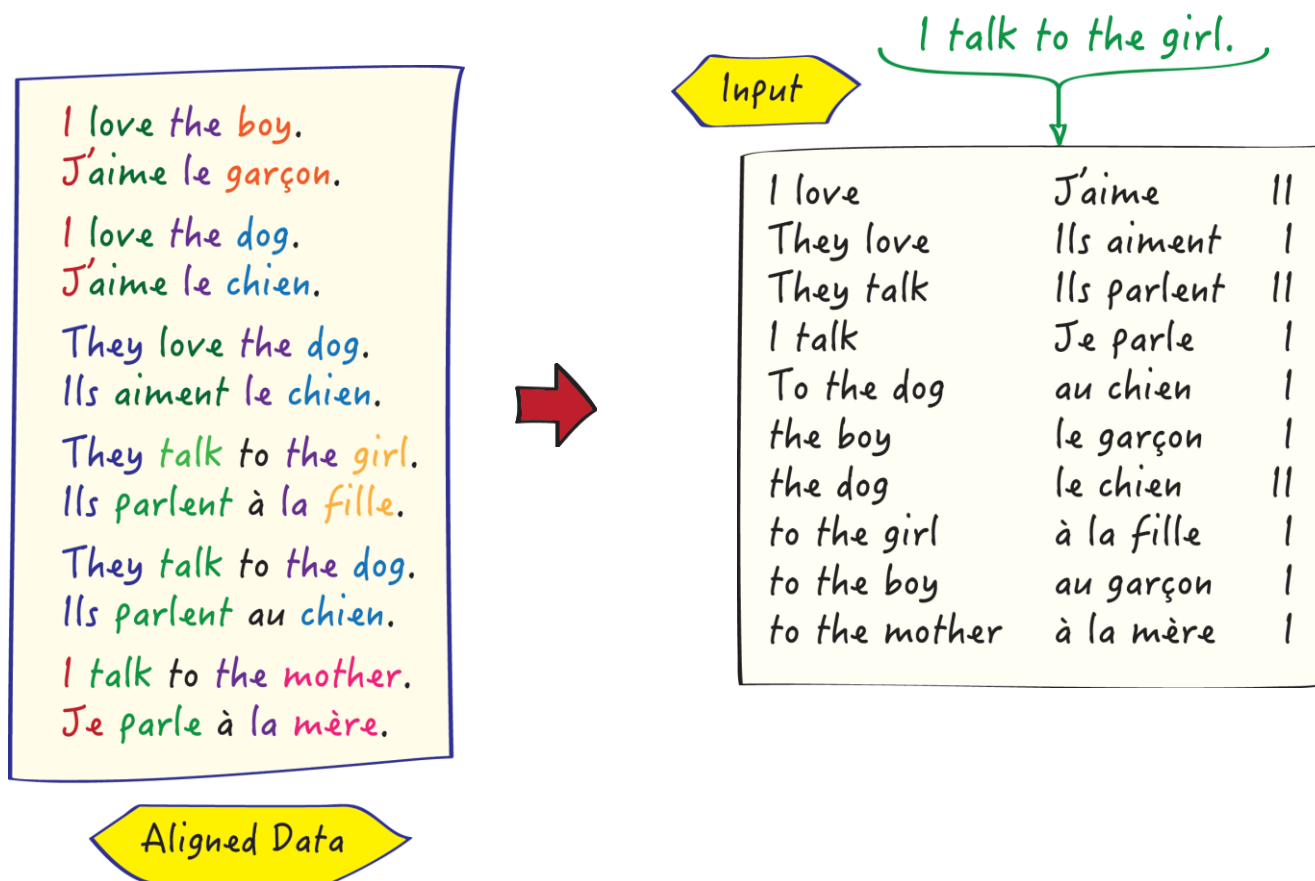 I love the boy.
J'aime le garçon.
I love the dog.
J'aime le chien.
They love the dog.
Ils aiment le chien.
They talk to the girl.
Ils parlent à la fille.
They talk to the dog.
Ils parlent au chien.
I talk to the mother.
Je parle à la mère.
Aligned Data
I talk to the girl.
Input
I love J'aime II
They love Ils aiment I
They talk Ils parlent II
I talk Je parle I
To the dog au chien I
the boy le garçon I
the dog le chien II
to the girl à la fille I
to the boy au garçon I
to the mother à la mère I